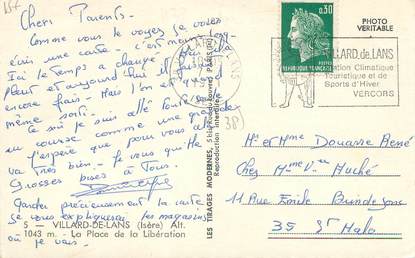 Chers Parents.
Comme vous le voyez je vous
écris une carte - c'est mon
Ici le temps a changé
Pleut et aujourd'hui il fait
encore frais - Mais l'on est quand
même sorti.
Ce soir je suis allé faire
en course comme une grande
J'espère que pour vous
va très bien. Je vous quitte
Grosses bises à Tous.
Garder précieusement la carte
je vous expliquerai les magasins
où je vais.
5 - VILLARD-DE-LANS (Isère) Alt.
1043 m. - La Place de la Libération
LES TIRAGES MODERNES,
Reproduction interdite
PHOTO
VERITABLE
0,30
REPUBLIQUE FRANCAISE
POSTES
VILLARD.de.LANS
Station Climatique
Touristique et de
Sports d'Hiver
VERCORS
38
Mr et Mme Douasse René
Chez Mme Vve Huché
11 Rue Emile
35 St Malo